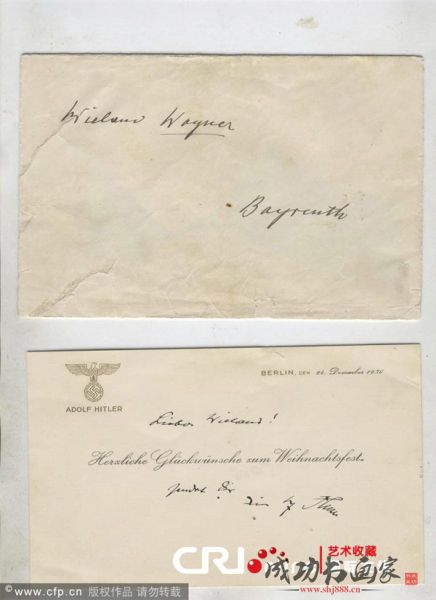 Wieland Wagner
Bayreuth
BERLIN, DEN 24. Dezember 1936
ADOLF HITLER
Lieber Wieland!
Herzliche Glückwünsche zum Weihnachtsfest
sendet Dir
Dein
CRI
艺术收藏
成功书画家
www.cfp.cn 版权作品 请勿转载
www.shj888.com